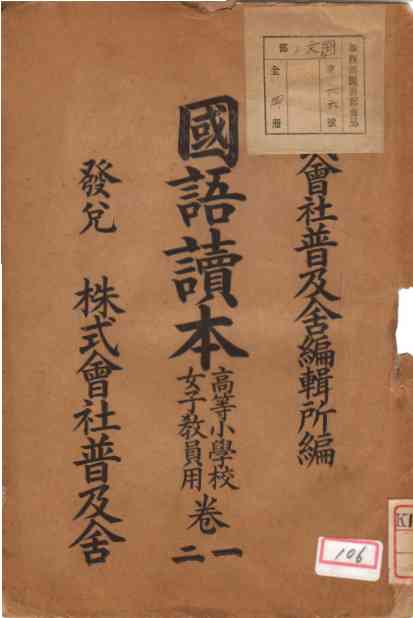 國文ノ部
號
全四冊
會社普及舍編輯所編
國語讀本
高等小學校
女子教員用
卷
一
二
發兌 株式會社普及舍
106